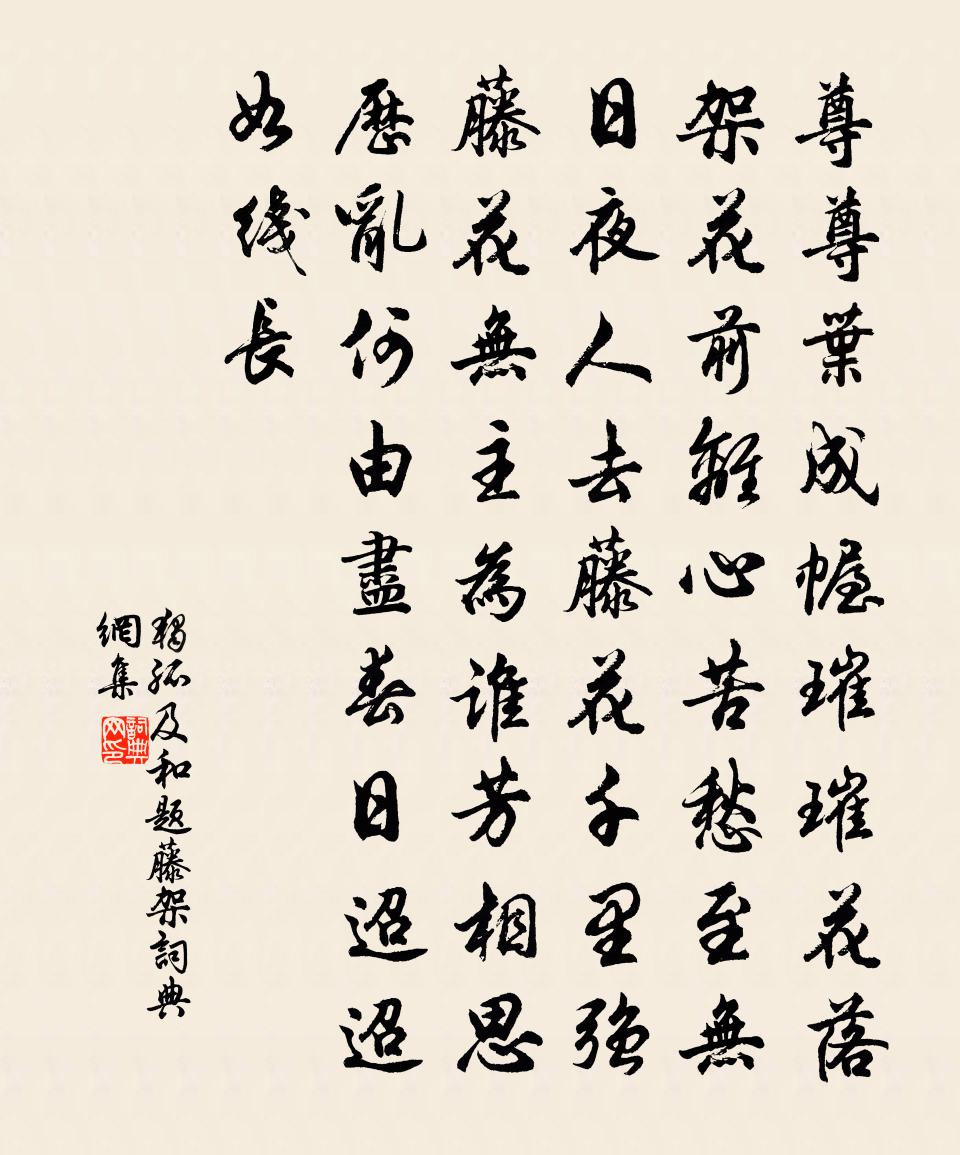 尊尊葉成幄璀璀花落
架花前離心苦愁至無
日夜人去藤花千里強
藤花無主為誰芳相思
歷亂何由盡春日迢迢
如线長
獨孤及和题藤架詞典
網集
詞典網印